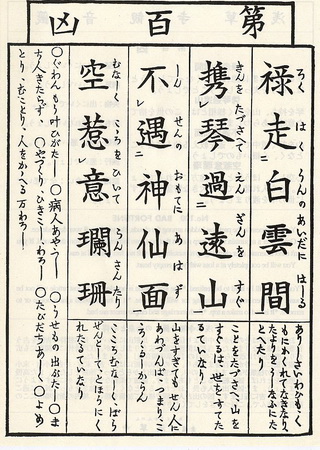 第百凶
ろく はくうんのあいだに はしる
禄走二白雲間
きんをたづさへて えんざんを すぐ
携レ琴過二遠山
しんせんの おもてに あはず
不レ遇二神仙面
むなしく こゝろをひいて らんさんたり
空惹レ意瓓珊
ありしさいわひも、く
もにわかれてなきなり、
たよりをうしなふた
とへたり
ことをたづさへ、山を
すぐるは、世をすてた
るていなり
山をすぎても せん人に
あわづんば、つまり、こ
ゝろくるしからん
こゝちむなしく、ばら
ぜんとして、とほうにく
れたるていなり
○ぐわんもう叶ひがたし ○病人あやうし ○うせもの出ぶたし ○ま
ち人きたらず、 ○やづくり、ひきこし、わろし ○たびだちあしく ○よめ
とり、むことり、人をかゝへる 万わろし